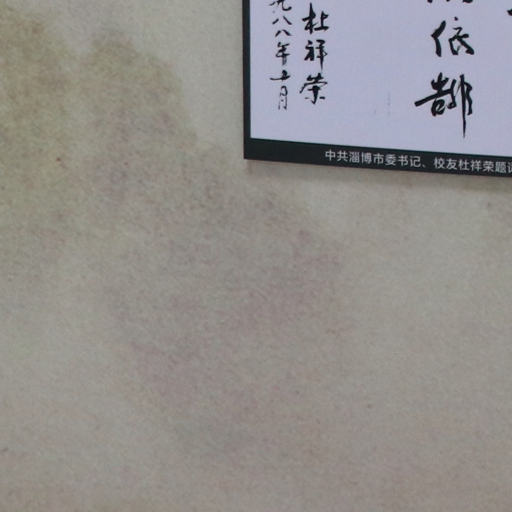 依郜
杜祥荣
九八八年十月
中共淄博市委书记、校友杜祥荣题